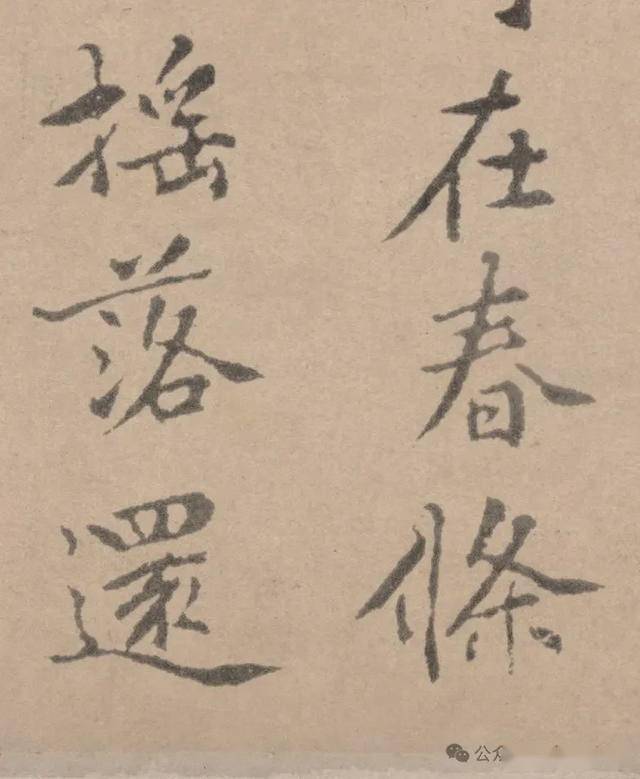 在春條
搖落還
公